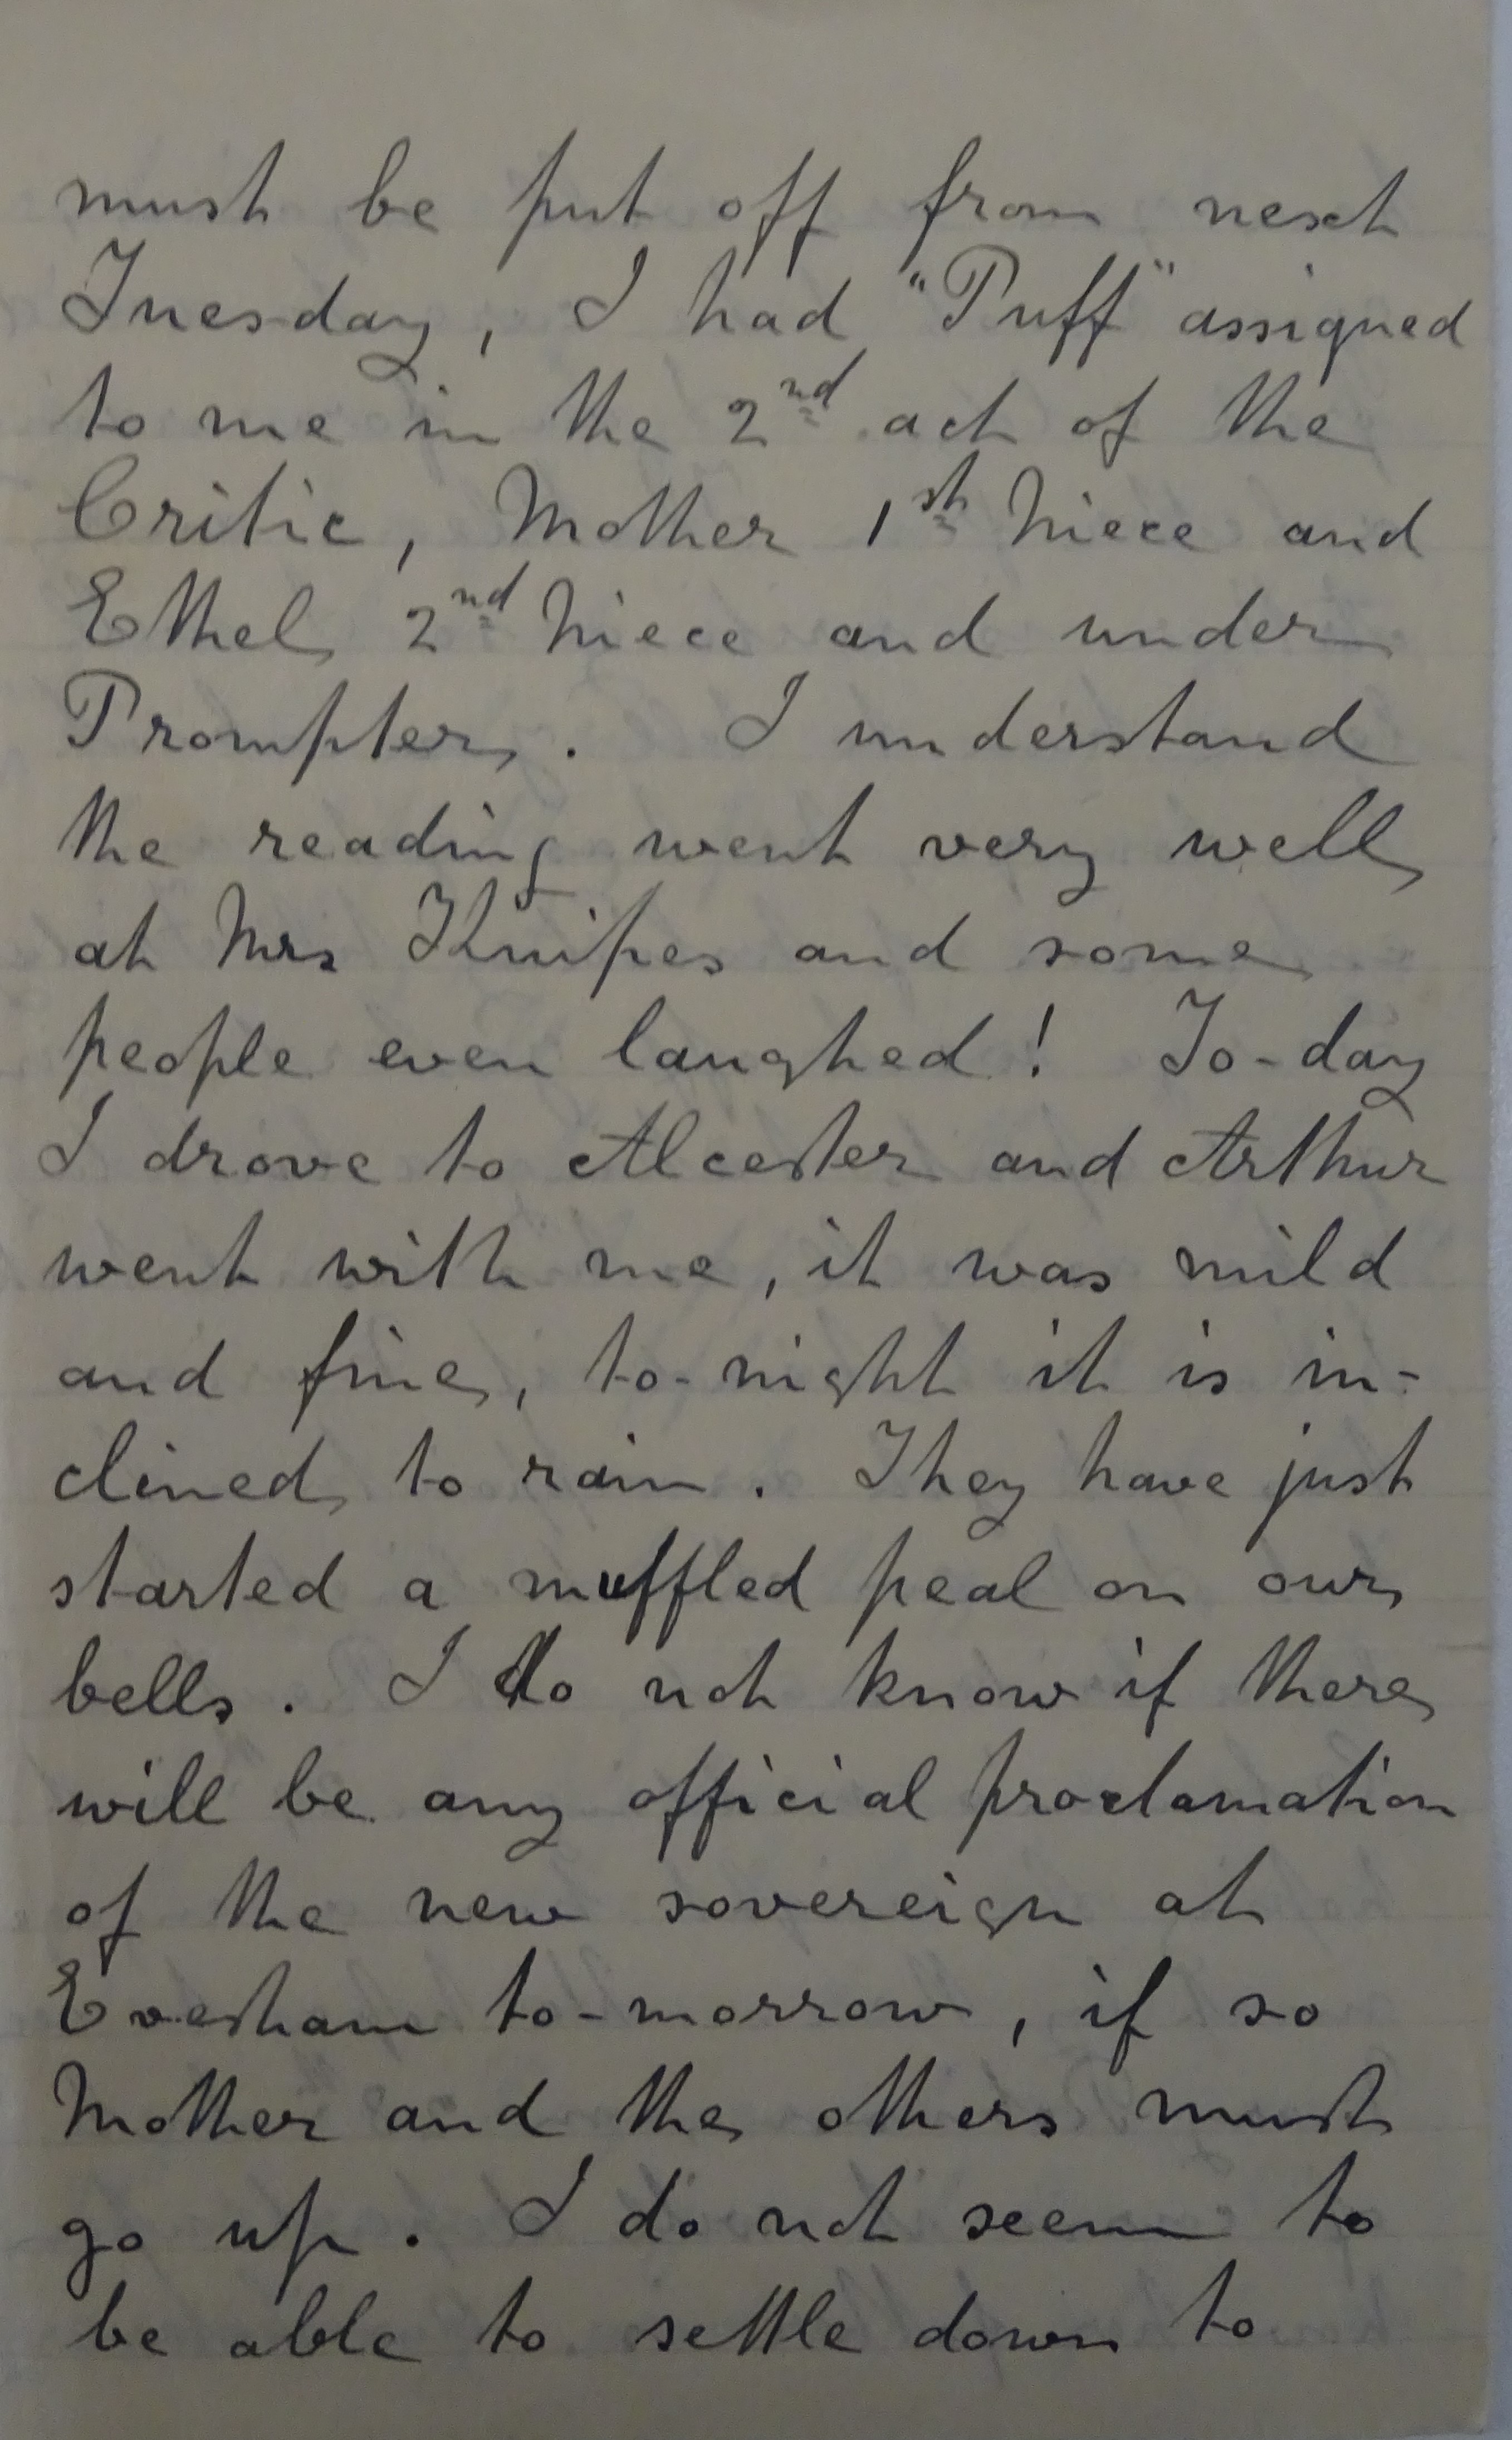 must be put off from next
Tuesday, I had "Puff" assigned
to me in the 2nd act of the
Critic, Mother 1st Niece and
Ethel 2nd Niece and under
Prompter. I understand
the reading went very well
at Mrs Knipes and some
people even laughed! To-day
I drove to Alcester and Arthur
went with me, it was mild
and fine, to-night it is in-
clined to rain. They have just
started a muffled peal on our
bells. I do not know if there
will be any official proclamation
of the new sovereign at
Evesham to-morrow, if so
Mother and the others must
go up. I do not seem to
be able to settle down to